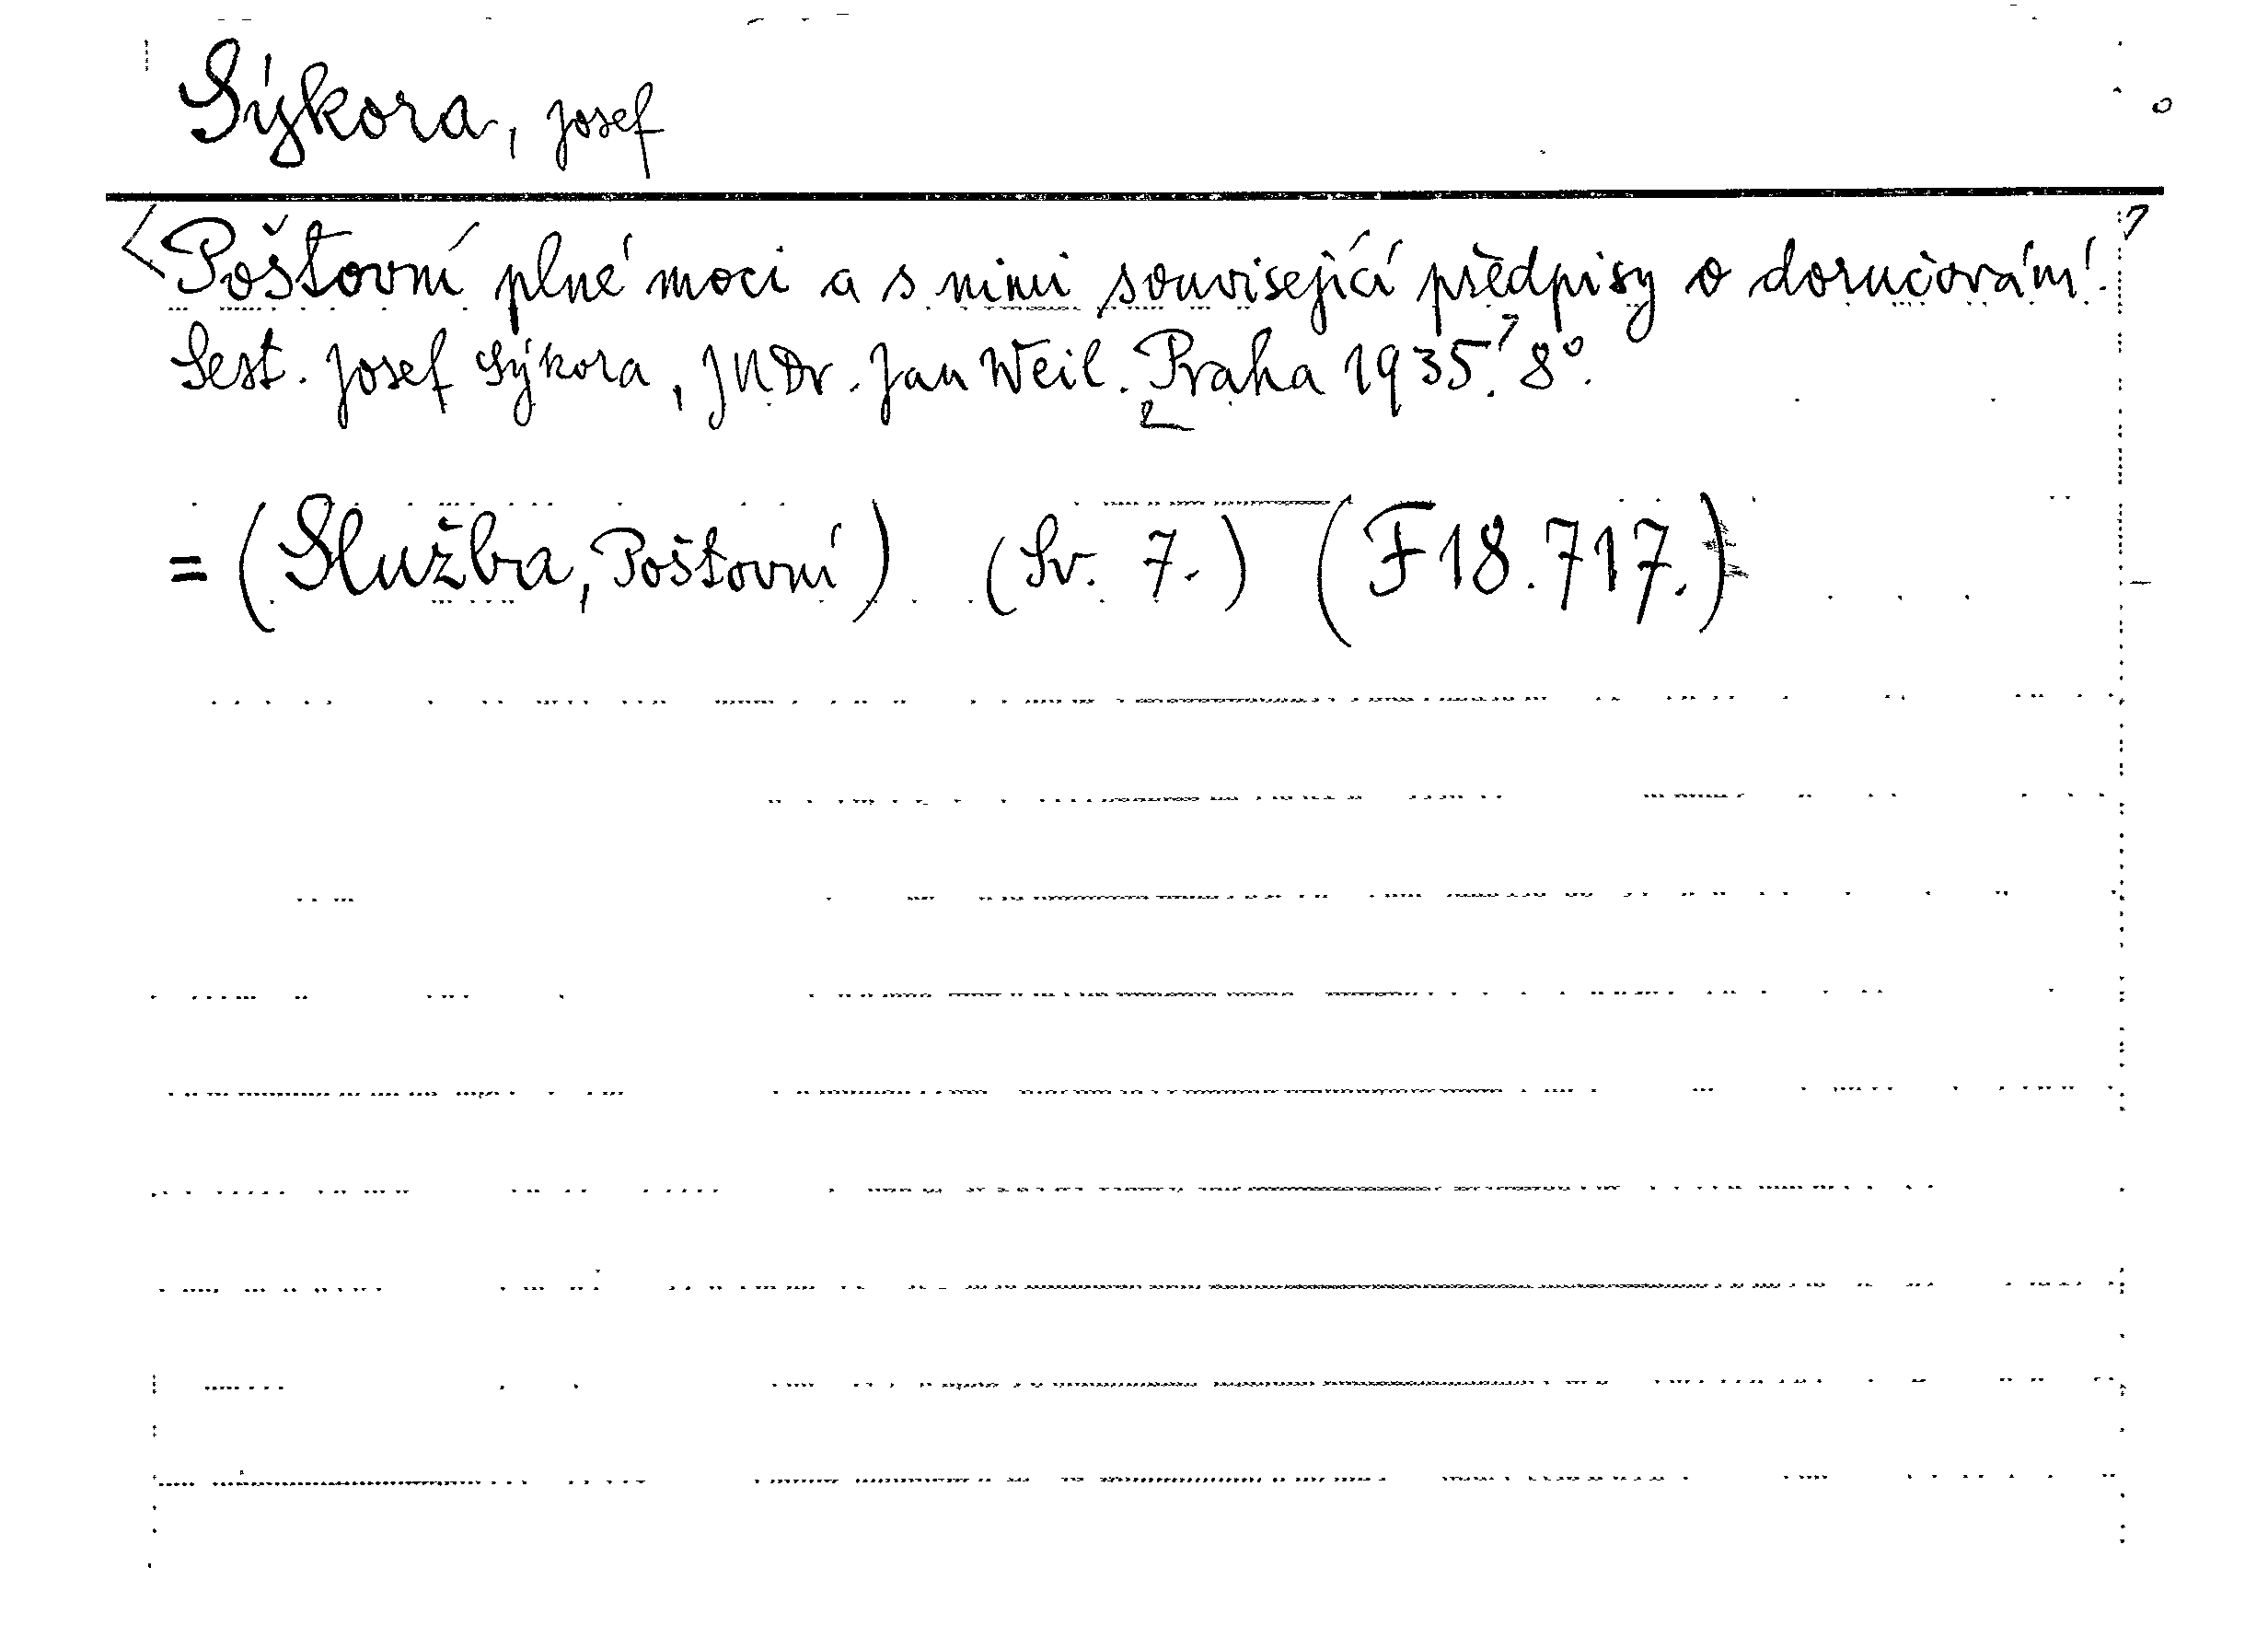 Sýkora, Josef
Poštovní plné moci a s nimi související předpisy o doručování.
Sest. Josef Sýkora, JUDr. Jan Weil. Praha 1935. 8°.
= (Služba, Poštovní) (Sv. 7.) (F 18.717.)